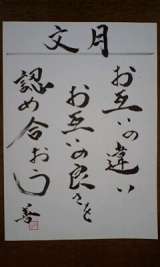 文月
お互いの違い
お互いの良さを
認め合おう
善